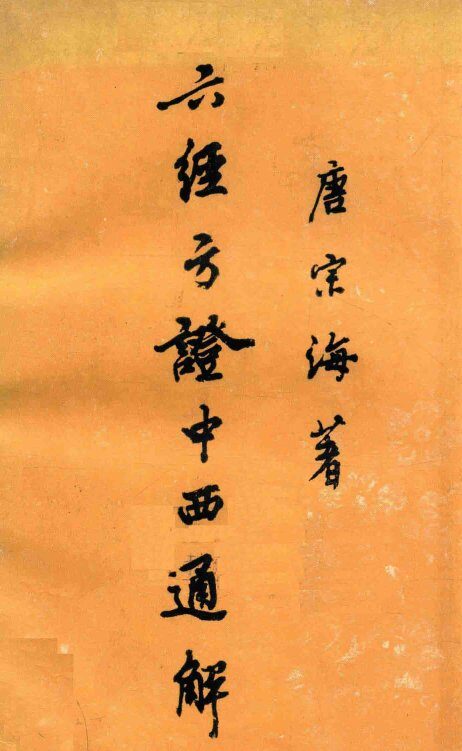 唐宗海著
六經方證中西通解